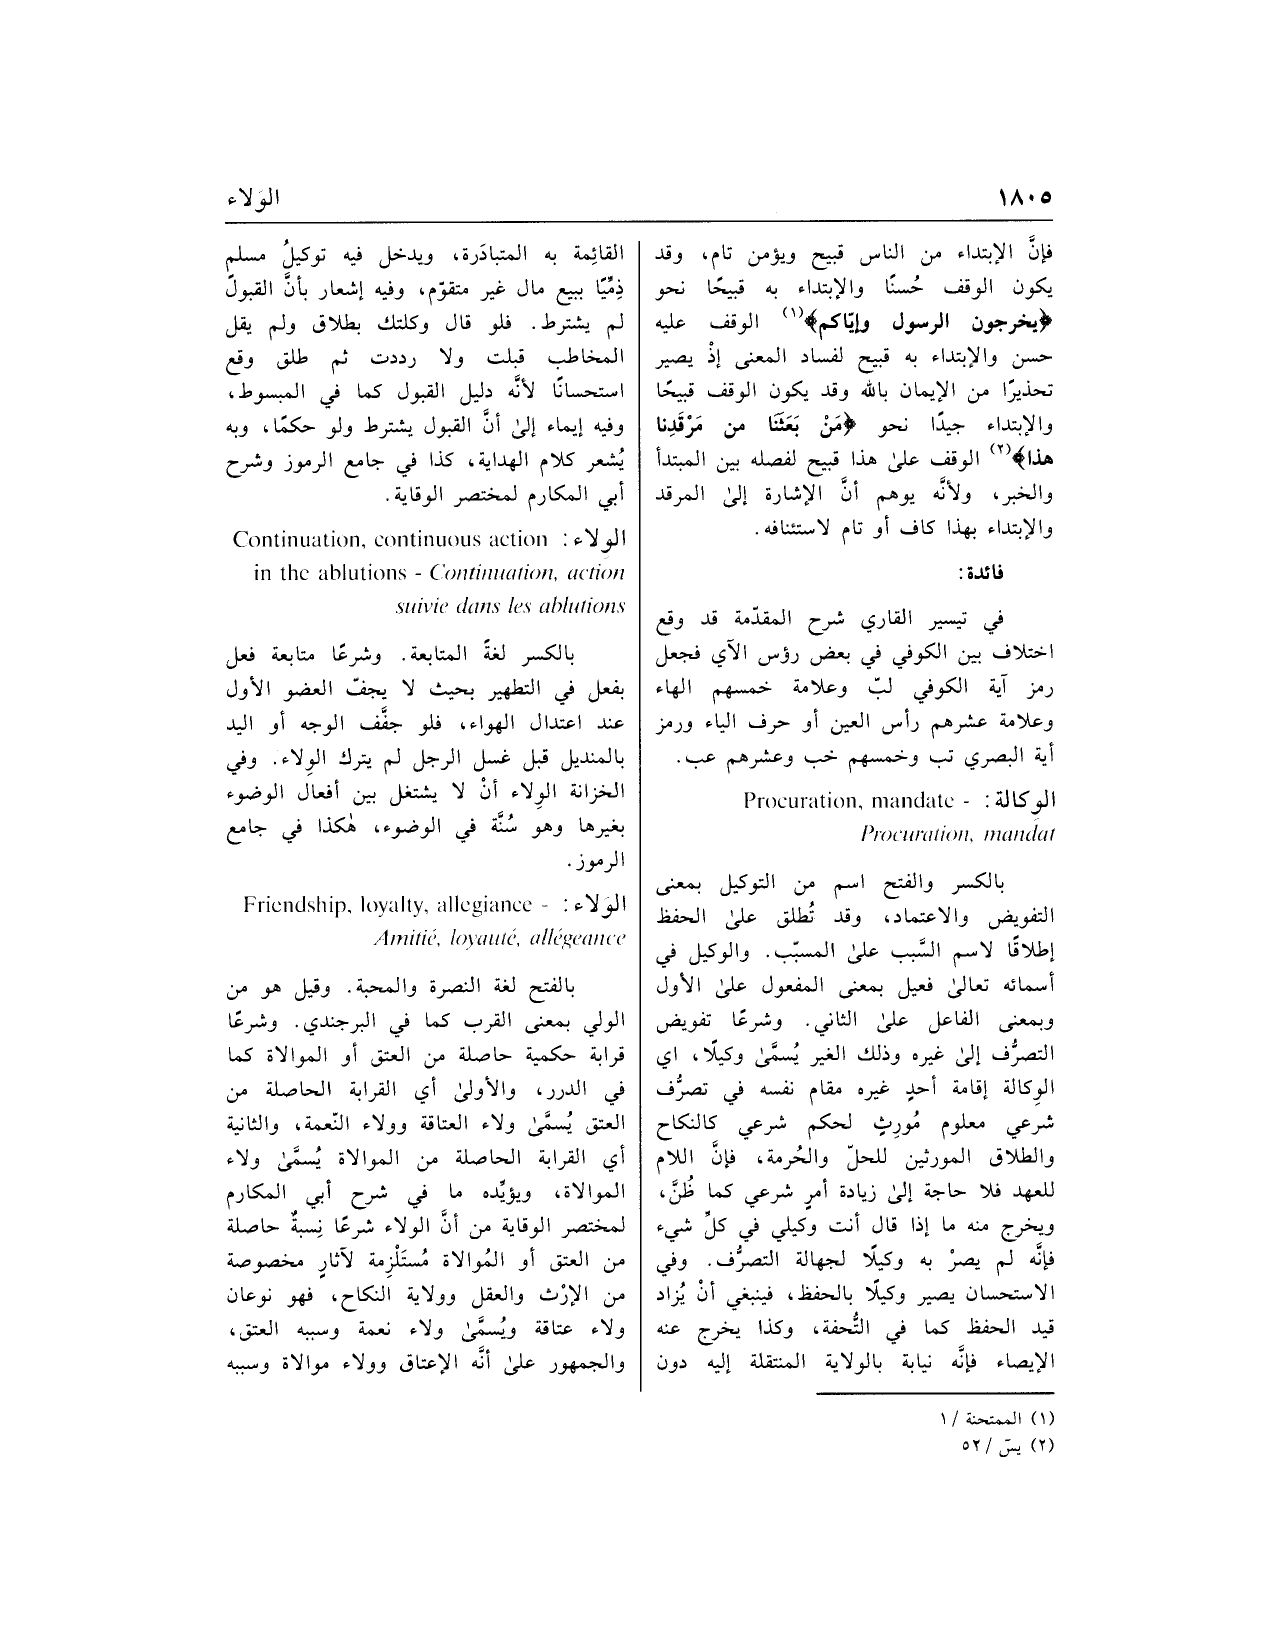 ١٨٠٥
الوَلاء
فإنَّ الإبتداء من الناس قبيح ويؤمن تام، وقد
يكون الوقف حُسنًا والإبتداء به قبيحًا نحو
﴿يخرجون الرسول وإيّاكم﴾(١) الوقف عليه
حسن والإبتداء به قبيح لفساد المعنى إذْ يصير
تحذيرًا من الإيمان بالله وقد يكون الوقف قبيحًا
والإبتداء جيدًا نحو ﴿مَنْ بَعَثَنَا من مَرْقَدِنا
هذا﴾(٢) الوقف علىٰ هذا قبيح لفصله بين المبتدأ
والخبر، ولأنَّه يوهم أنَّ الإشارة إلىٰ المرقد
والإبتداء بهذا كاف أو تام لاستئنافه.
فائدة:
في تيسير القاري شرح المقدّمة قد وقع
اختلاف بين الكوفي في بعض رؤس الآي فجعل
رمز آية الكوفي لبّ وعلامة خمسهم الهاء
وعلامة عشرهم رأس العين أو حرف الياء ورمز
أية البصري تب وخمسهم خب وعشرهم عب.
الوِكالة: Procuration, mandate -
Procuration, mandat
بالكسر والفتح اسم من التوكيل بمعنى
التفويض والاعتماد، وقد تُطلق علىٰ الحفظ
إطلاقًا لاسم السَّبب علىٰ المسبّب. والوكيل في
أسمائه تعالىٰ فعيل بمعنى المفعول علىٰ الأول
وبمعنى الفاعل علىٰ الثاني. وشرعًا تفويض
التصرُّف إلىٰ غيره وذلك الغير يُسمَّىٰ وكيلًا، اي
الوِكالة إقامة أحدٍ غيره مقام نفسه في تصرُّف
شرعي معلوم مُورِثٍ لحكم شرعي كالنكاح
والطلاق المورثين للحلّ والحُرمة، فإنَّ اللام
للعهد فلا حاجة إلىٰ زيادة أمرٍ شرعي كما ظُنَّ،
ويخرج منه ما إذا قال أنت وكيلي في كلِّ شيء
فإنَّه لم يصرْ به وكيلًا لجهالة التصرُّف. وفي
الاستحسان يصير وكيلًا بالحفظ، فينبغي أنْ يُزاد
قيد الحفظ كما في التُّحفة، وكذا يخرج عنه
الإيصاء فإنَّه نيابة بالولاية المنتقلة إليه دون
القائِمة به المتبادَرة، ويدخل فيه توكيلُ مسلم
ذِمِّيًا ببيع مال غير متقوّم، وفيه إشعار بأنَّ القبولَ
لم يشترط. فلو قال وكلتك بطلاق ولم يقل
المخاطب قبلت ولا رددت ثم طلق وقع
استحسانًا لأنَّه دليل القبول كما في المبسوط،
وفيه إيماء إلىٰ أنَّ القبول يشترط ولو حكمًا، وبه
يُشعر كلام الهداية، كذا في جامع الرموز وشرح
أبي المكارم لمختصر الوقاية.
الوِلاء: Continuation, continuous action
in the ablutions - Continuation, action
suivie dans les ablutions
بالكسر لغةً المتابعة. وشرعًا متابعة فعل
بفعل في التطهير بحيث لا يجفّ العضو الأول
عند اعتدال الهواء، فلو جفَّف الوجه أو اليد
بالمنديل قبل غسل الرجل لم يترك الوِلاء. وفي
الخزانة الوِلاء أنْ لا يشتغل بين أفعال الوضوء
بغيرها وهو سُنَّة في الوضوء، هٰكذا في جامع
الرموز.
الوَلاء: Friendship, loyalty, allegiance -
Amitié, loyauté, allégeance
بالفتح لغة النصرة والمحبة. وقيل هو من
الولي بمعنى القرب كما في البرجندي. وشرعًا
قرابة حكمية حاصلة من العتق أو الموالاة كما
في الدرر، والأولىٰ أي القرابة الحاصلة من
العتق يُسمَّىٰ ولاء العتاقة وولاء النّعمة، والثانية
أي القرابة الحاصلة من الموالاة يُسمَّىٰ ولاء
الموالاة، ويؤيِّده ما في شرح أبي المكارم
لمختصر الوقاية من أنَّ الولاء شرعًا نِسبةٌ حاصلة
من العتق أو المُوالاة مُستَلْزِمة لآثارٍ مخصوصة
من الإرْث والعقل وولاية النكاح، فهو نوعان
ولاء عتاقة ويُسمَّىٰ ولاء نعمة وسببه العتق،
والجمهور علىٰ أنَّه الإعتاق وولاء موالاة وسببه
(١) الممتحنة /١
(٢) يسّ /٥٢